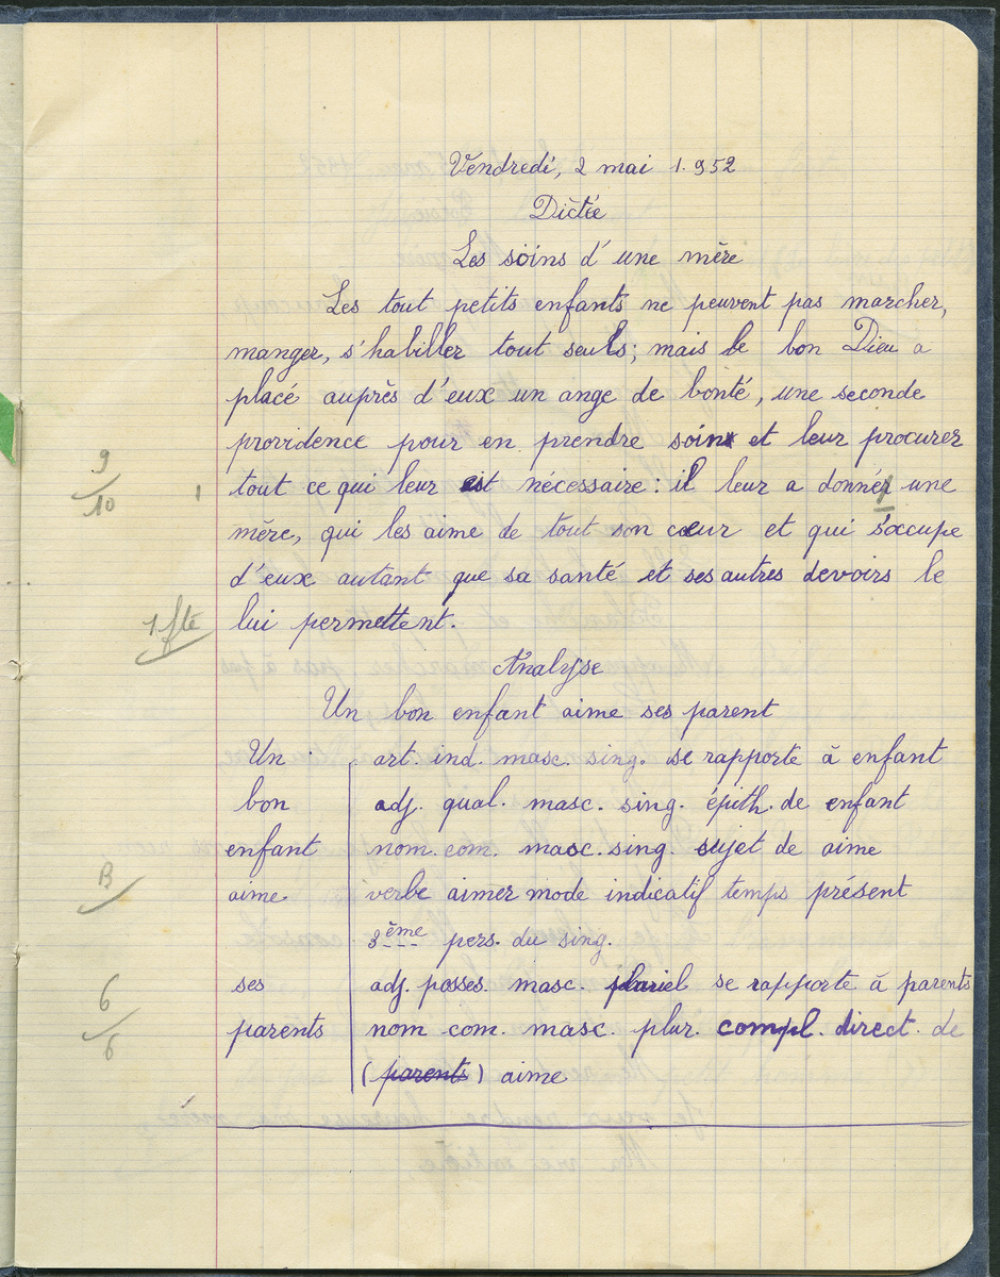 Vendredi, 2 mai 1.952
Dictée
Les soins d'une mère
Les tout petits enfants ne peuvent pas marcher,
manger, s'habiller tout seuls; mais le bon Dieu a
placé auprès d'eux un ange de bonté, une seconde
providence pour en prendre soin et leur procurer
9/10 1 tout ce qui leur est nécessaire: il leur a donné une
mère, qui les aime de tout son cœur et qui s'occupe
d'eux autant que sa santé et ses autres devoirs le
1 fte lui permettent.
Analyse
Un bon enfant aime ses parent
Un art. ind. masc. sing. se rapporte à enfant
bon adj. qual. masc. sing. épith. de enfant
enfant nom. com. masc. sing. sujet de aime
B aime verbe aimer mode indicatif temps présent
3ème pers. du sing.
6/6 ses adj. posses. masc. pluriel se rapporte à parents
parents nom com. masc. plur. compl. direct. de
(parents) aime